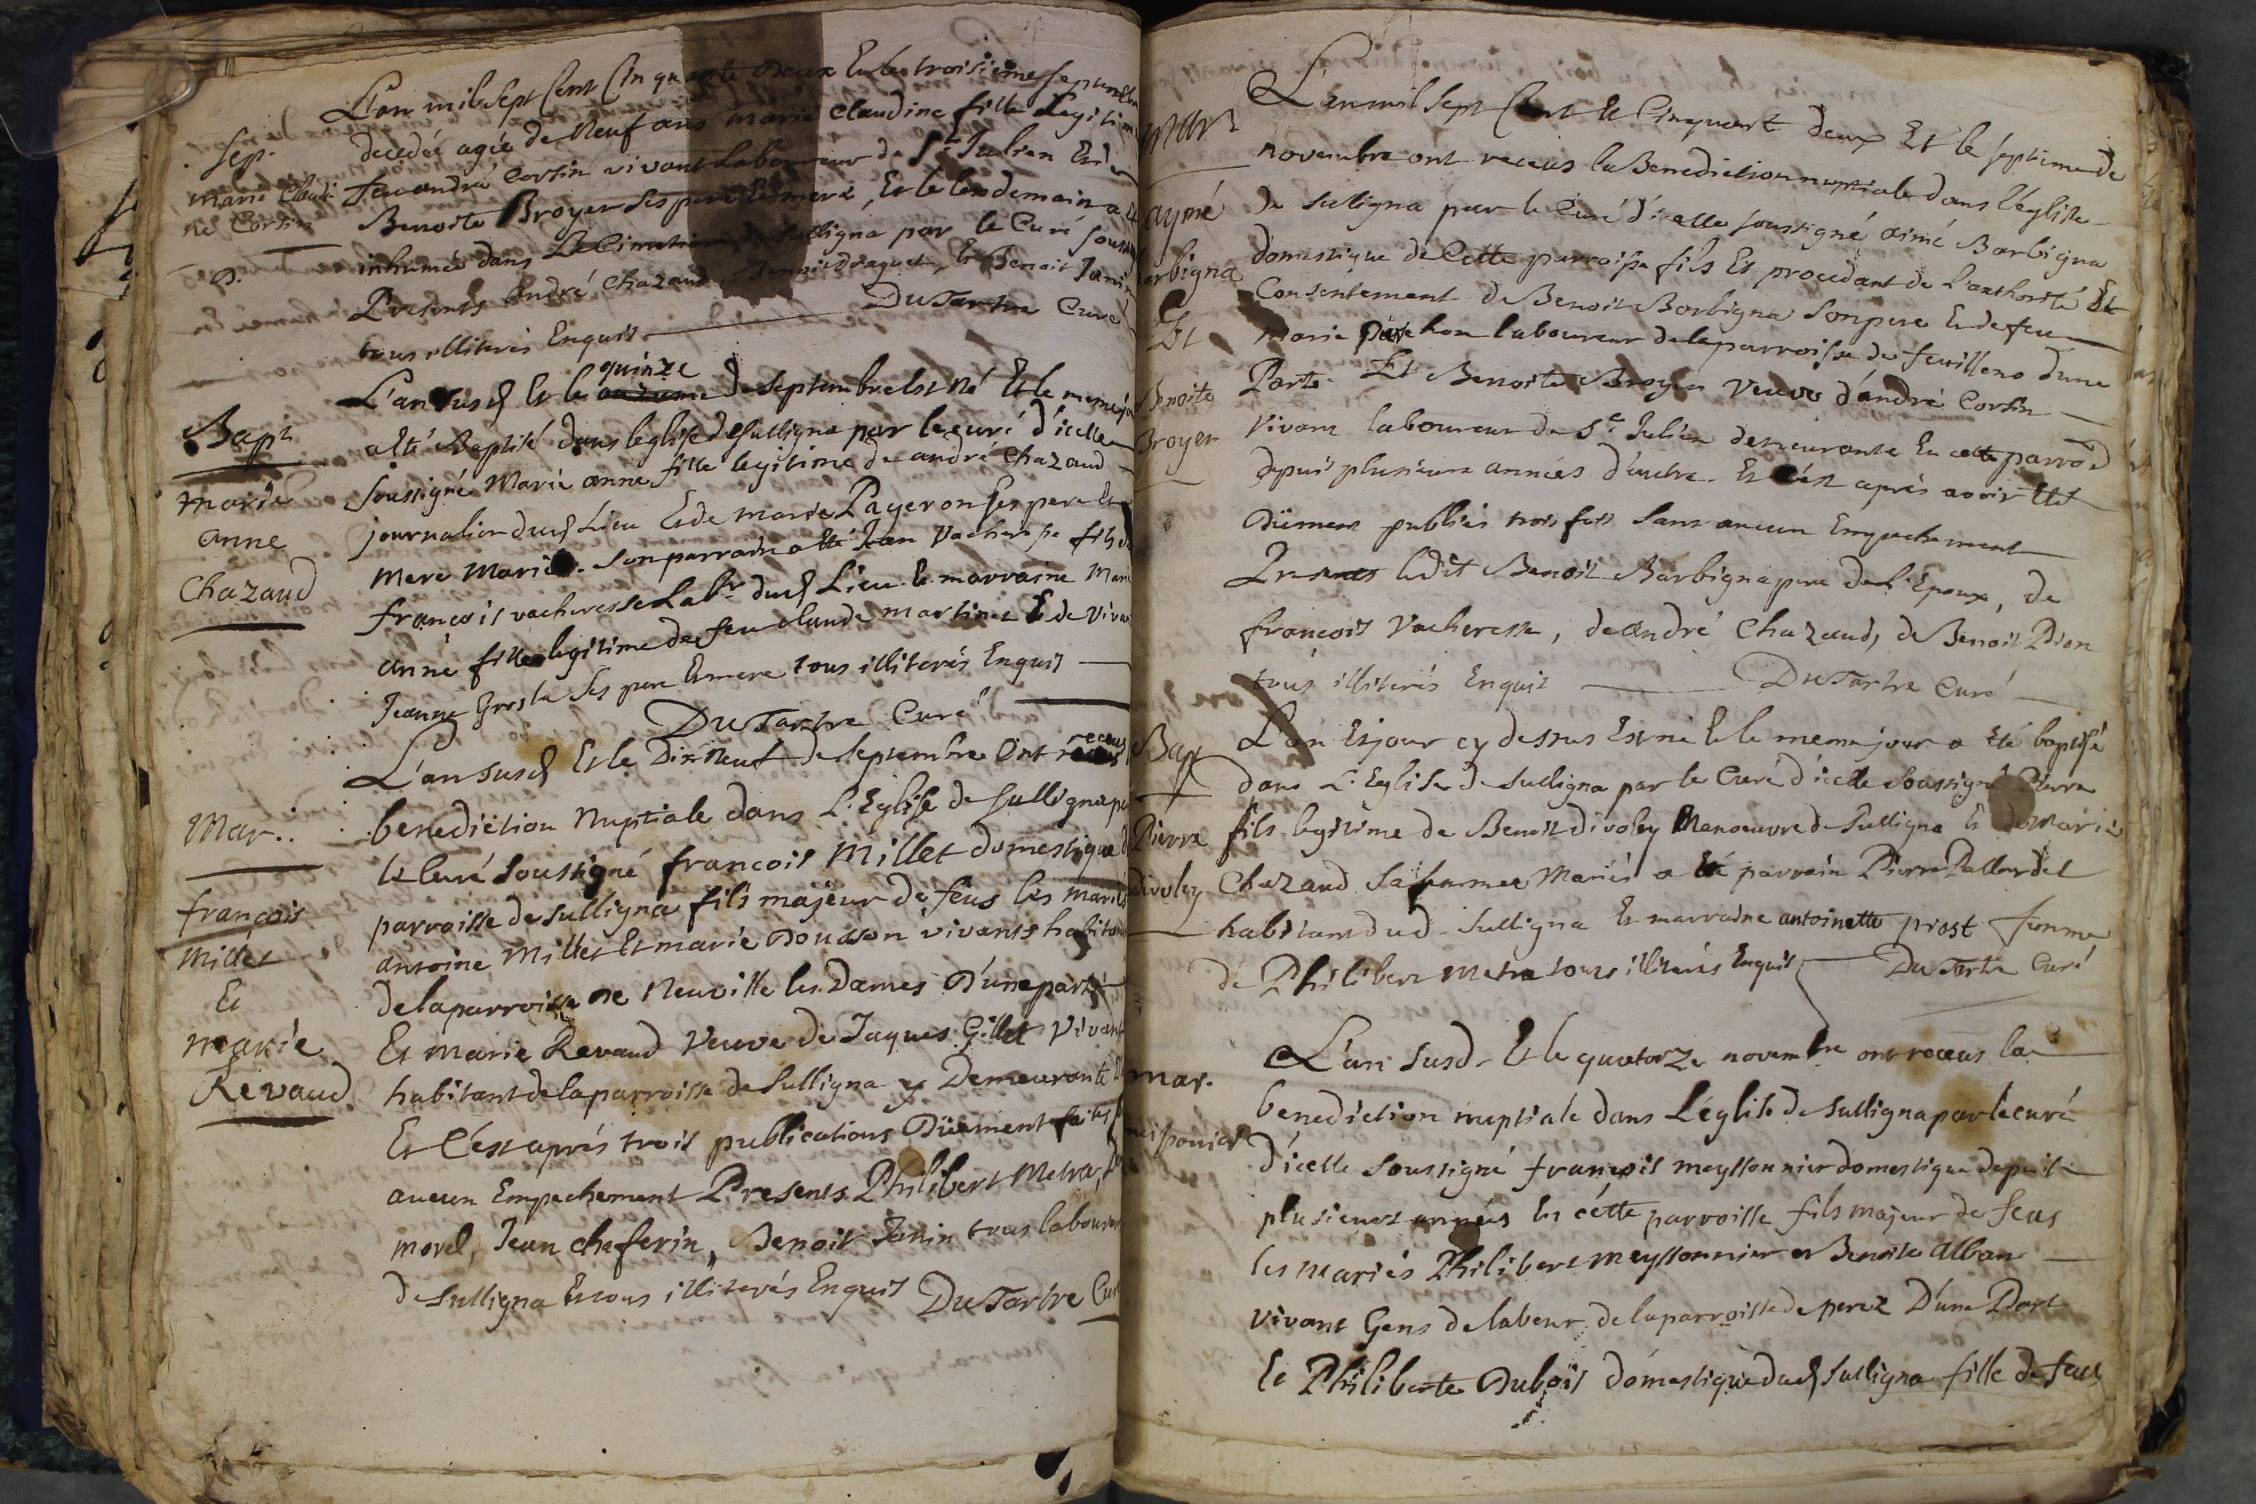 L'an mil sept Cent Cinquante Deux Et le troisieme septembre
Sep.
decedée agée de Neuf ans marie claudine fille Legitime
marie Claudi
ne Corsin
feu andré Corsin vivant Laboureur de St Julien Et de
Benoite Broyer ses pere Et mere, Et le lendemain a
inhumée dans Le Cimetiere de Sulligna par le Curé Sous
Presents andré Chazaud, Benoit draquet, Et Benoit Janin
tous illiterés Enquis DuTartre Curé
L'an susd Et le quinze de septembre Est Né Et le meme jo
Bapt
a Eté Baptisé dans l'eglise de Sulligna par le curé d'icelle
marie
anne
Chazaud
soussigné Marie anne fille legitime de andré Chazaud
journalier dud Lieu Et de marie Payeron ses pere Et
mere Mariés. Son parrain a Eté Jean Vacheresse fils de
francois vacheresse Labr dud Lieu Et marraine Marie
anne fille legitime de feu claude martinet Et de Viva
Jeanne Grosla ses pere Et mere tous illiterés Enquis
DuTartre Curé
L'an susd Et le Dix Neuf de septembre Ont receus
Mar..
benediction Nuptiale dans L'Eglise de Sulligna p
le Curé soussigné francois Millet domestique d
francois
Millet
Et
marie
Revaud
parroisse de Sulligna fils majeur de feus les mariés
antoine Millet Et marie Douason vivants habitans
de la parroisse de Neuville les Dames D'une part
Et Marie Revaud Veuve de Jaques Gillet Vivant
habitant de la parroisse de Sulligna y Demeurante
Et C'est aprés trois publications Düement faites
aucun Empechement Presents Philibert Metra,
morel, Jean cheferin, Benoit Janin tous laboureurs
de Sulligna Et tous illiterés Enquis DuTartre Cur
L'an mil sept Cent Et Cinquant deux Et le septieme de
Mar
novembre ont receus la Benediction nuptiale dans l'eglise
aymé
arbigna
Et
Benoite
Broyer
de Sulligna par le Curé d'icelle soussigné aimé Barbigna
domestique de Cette parroisse fils Et procedant de l'authorité Et
Consentement de Benoit Barbigna Son pere Et de feu
marie laboureur de la parroisse de feuillens d'une
Parte. Et Benoite Broyer veuve d'andré Corsin
vivant laboureur de St Julien demeurante En cette parroe
depuis plusieurs années d'autre. Et C'est aprés avoir Eté
Düement publiés trois fois sans aucun Empechement
Presents ledit Benoit Barbigna pere de L'Epoux, de
francois Vacheresse, de andré Chazaud, de Benoit Pion
tous illiterés Enquis DuTartre Curé
Bap
L'an Et jour cy dessus Est né Et le meme jour a Eté baptisé
dans L'Eglise de Sulligna par le Curé d'icelle soussigné Pierre
Pierre
Divoley
fils legitime de Benoit divoley Manoeuvre de Sulligna Et de Marie
Chazaud Sa femme Mariés a Eté parrain Pierre Pallourdet
habitant dud. Sulligna Et marraine antoinette prost femme
de Philibert Metra tous illiterés Enquis DuTartre Curé
L'an susd. Et le quatorze novembre ont receus la
mar.
benediction nuptiale dans L'eglise de Sulligna par le curé
d'icelle soussigné francois meyssonnier domestique depuis
plusieurs années En cette parroisse fils majeur de feus
les mariés Philibert meyssonnier et Benoite alban
vivant Gens de labeur de la parroisse de perex D'une Part
Et Philiberte Dubois domestique dud Sulligna fille de feus